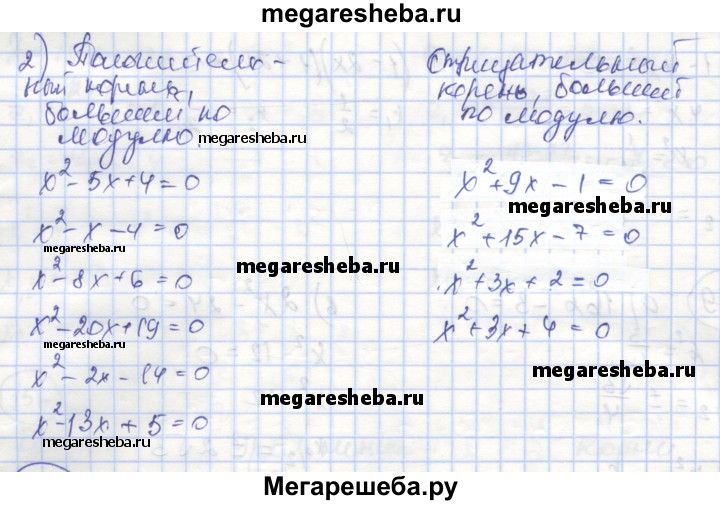 megaresheba.ru
2) Положитель-
ный корень,
больший по
модулю.
megaresheba.ru
x² - 5x + 4 = 0
x² - x - 4 = 0
megaresheba.ru
x² - 8x + 6 = 0
x² - 20x + 19 = 0
megaresheba.ru
x² - 2x - 14 = 0
x² - 13x + 5 = 0
megaresheba.ru
Отрицательный
корень, больший
по модулю.
x² + 9x - 1 = 0
megaresheba.ru
x² + 15x - 7 = 0
megaresheba.ru
x² + 3x + 2 = 0
x² + 3x + 4 = 0
megaresheba.ru
megaresheba.ru
Мегарешеба.ру